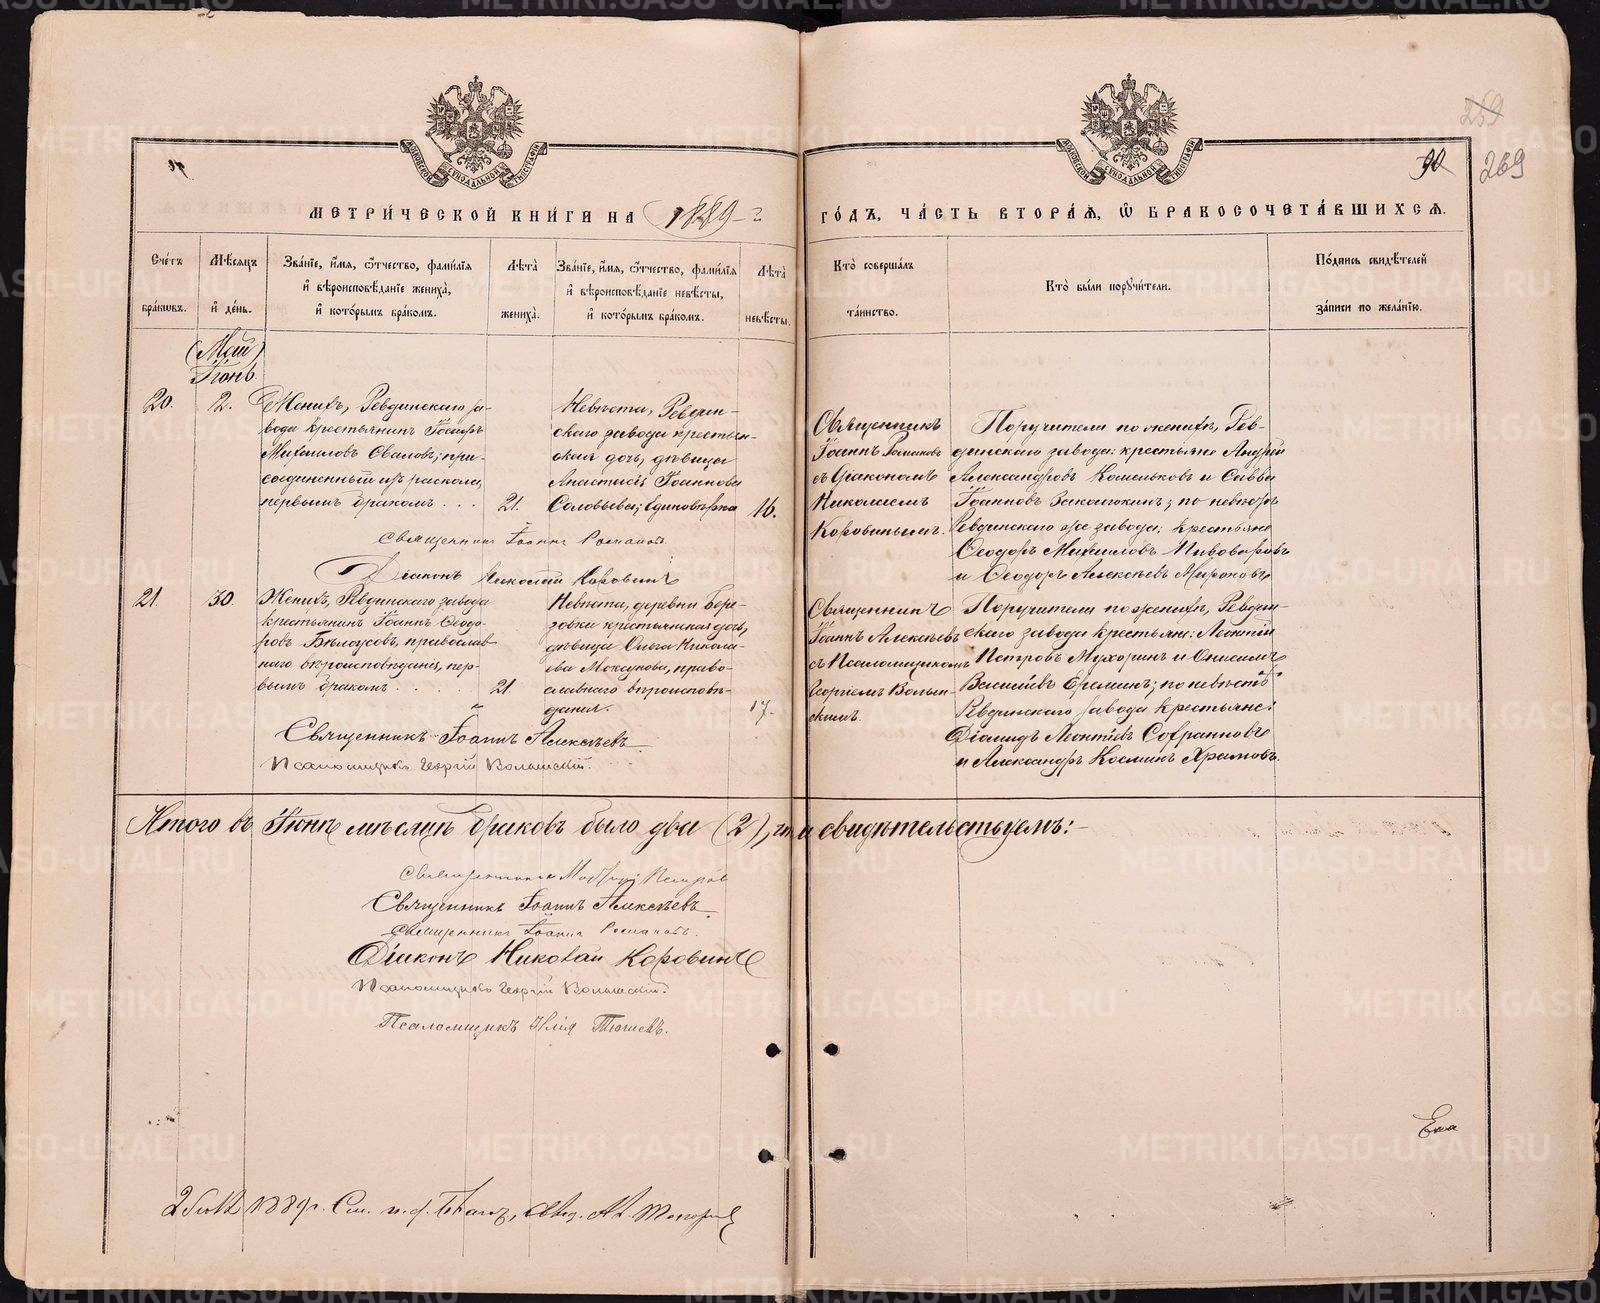 МЕТРИЧЕСКОЙ КНИГИ НА 1889 ГОДЪ, ЧАСТЬ ВТОРАЯ, Ѿ БРАКОСОЧЕТАВШИХСЯ.
90
259
269
МОСКОВСКОЙ СѴНОДАЛЬНОЙ ТИПОГРАФІИ
МОСКОВСКОЙ СѴНОДАЛЬНОЙ ТИПОГРАФІИ
Счетъ браковъ.
Мѣсяцъ и день.
Званіе, имя, отчество, фамилія и вѣроисповѣданіе жениха, и которымъ бракомъ.
Лѣта жениха.
Званіе, имя, отчество, фамилія и вѣроисповѣданіе невѣсты, и которымъ бракомъ.
Лѣта невѣсты.
Кто совершалъ таинство.
Кто были поручители.
Подпись свидѣтелей записи по желанію.
(Май)
Іюнь.
20.
2.
Женихъ, Ревдинскаго за-
вода крестьянинъ Іосифъ
Михаиловъ Оваловъ; при-
соединенный изъ раскола,
первымъ бракомъ . . .
21.
Невѣста, Ревдин-
скаго завода крестьян-
ская дочь, дѣвица
Анастасія Іоаннова
Соловьева; Единовѣрка
16.
Священникъ
Іоаннъ Романовъ
съ Діакономъ
Николаемъ
Коровинымъ.
Поручители по женихѣ, Рев-
динскаго завода: крестьяне Андрей
Александровъ Кошельковъ и Савва
Іоанновъ Закамокинъ; по невѣстѣ
Ревдинскаго же завода: крестьяне
Ѳеодоръ Михаиловъ Пивоваровъ
и Ѳеодоръ Алексѣевъ Мироновъ.
Священникъ Іоаннъ Романовъ.
Діаконъ Николай Коровинъ
21.
30.
Женихъ, Ревдинскаго завода
крестьянинъ Іоаннъ Ѳеодо-
ровъ Бѣлоусовъ, православ-
наго вѣроисповѣданія, пер-
вымъ бракомъ . . . . .
21
Невѣста, деревни Бере-
зовки крестьянская дочь,
дѣвица Ольга Никола-
ева Моксунова, право-
славнаго вѣроисповѣ-
данія.
17.
Священникъ
Іоаннъ Алексѣевъ
съ Псаломщикомъ
Георгіемъ Волын-
скимъ.
Поручители по женихѣ, Ревдин-
скаго завода крестьяне: Леонтій
Петровъ Мухоринъ и Онисимъ
Васильевъ Ереминъ; по невѣстѣ
Ревдинскаго завода крестьяне:
Діомидъ Леонтіевъ Софроновъ
и Александръ Косминъ Храмовъ.
Священникъ Іоаннъ Алексѣевъ
Псаломщикъ Георгій Волынскій.
Итого въ Іюнѣ мѣсяцѣ браковъ было два (2), что и свидѣтельствуемъ:
Священникъ Петровъ
Священникъ Іоаннъ Алексѣевъ.
Священникъ Іоаннъ Романовъ.
Діаконъ Николай Коровинъ
Псаломщикъ Георгій Волынскій.
Псаломщикъ Илія
1889 г.
METRIKI.GASO-URAL.RU